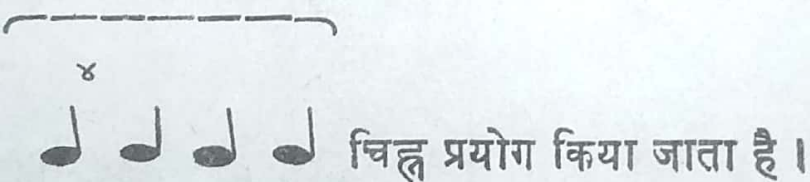 ४
चिह्न प्रयोग किया जाता है ।